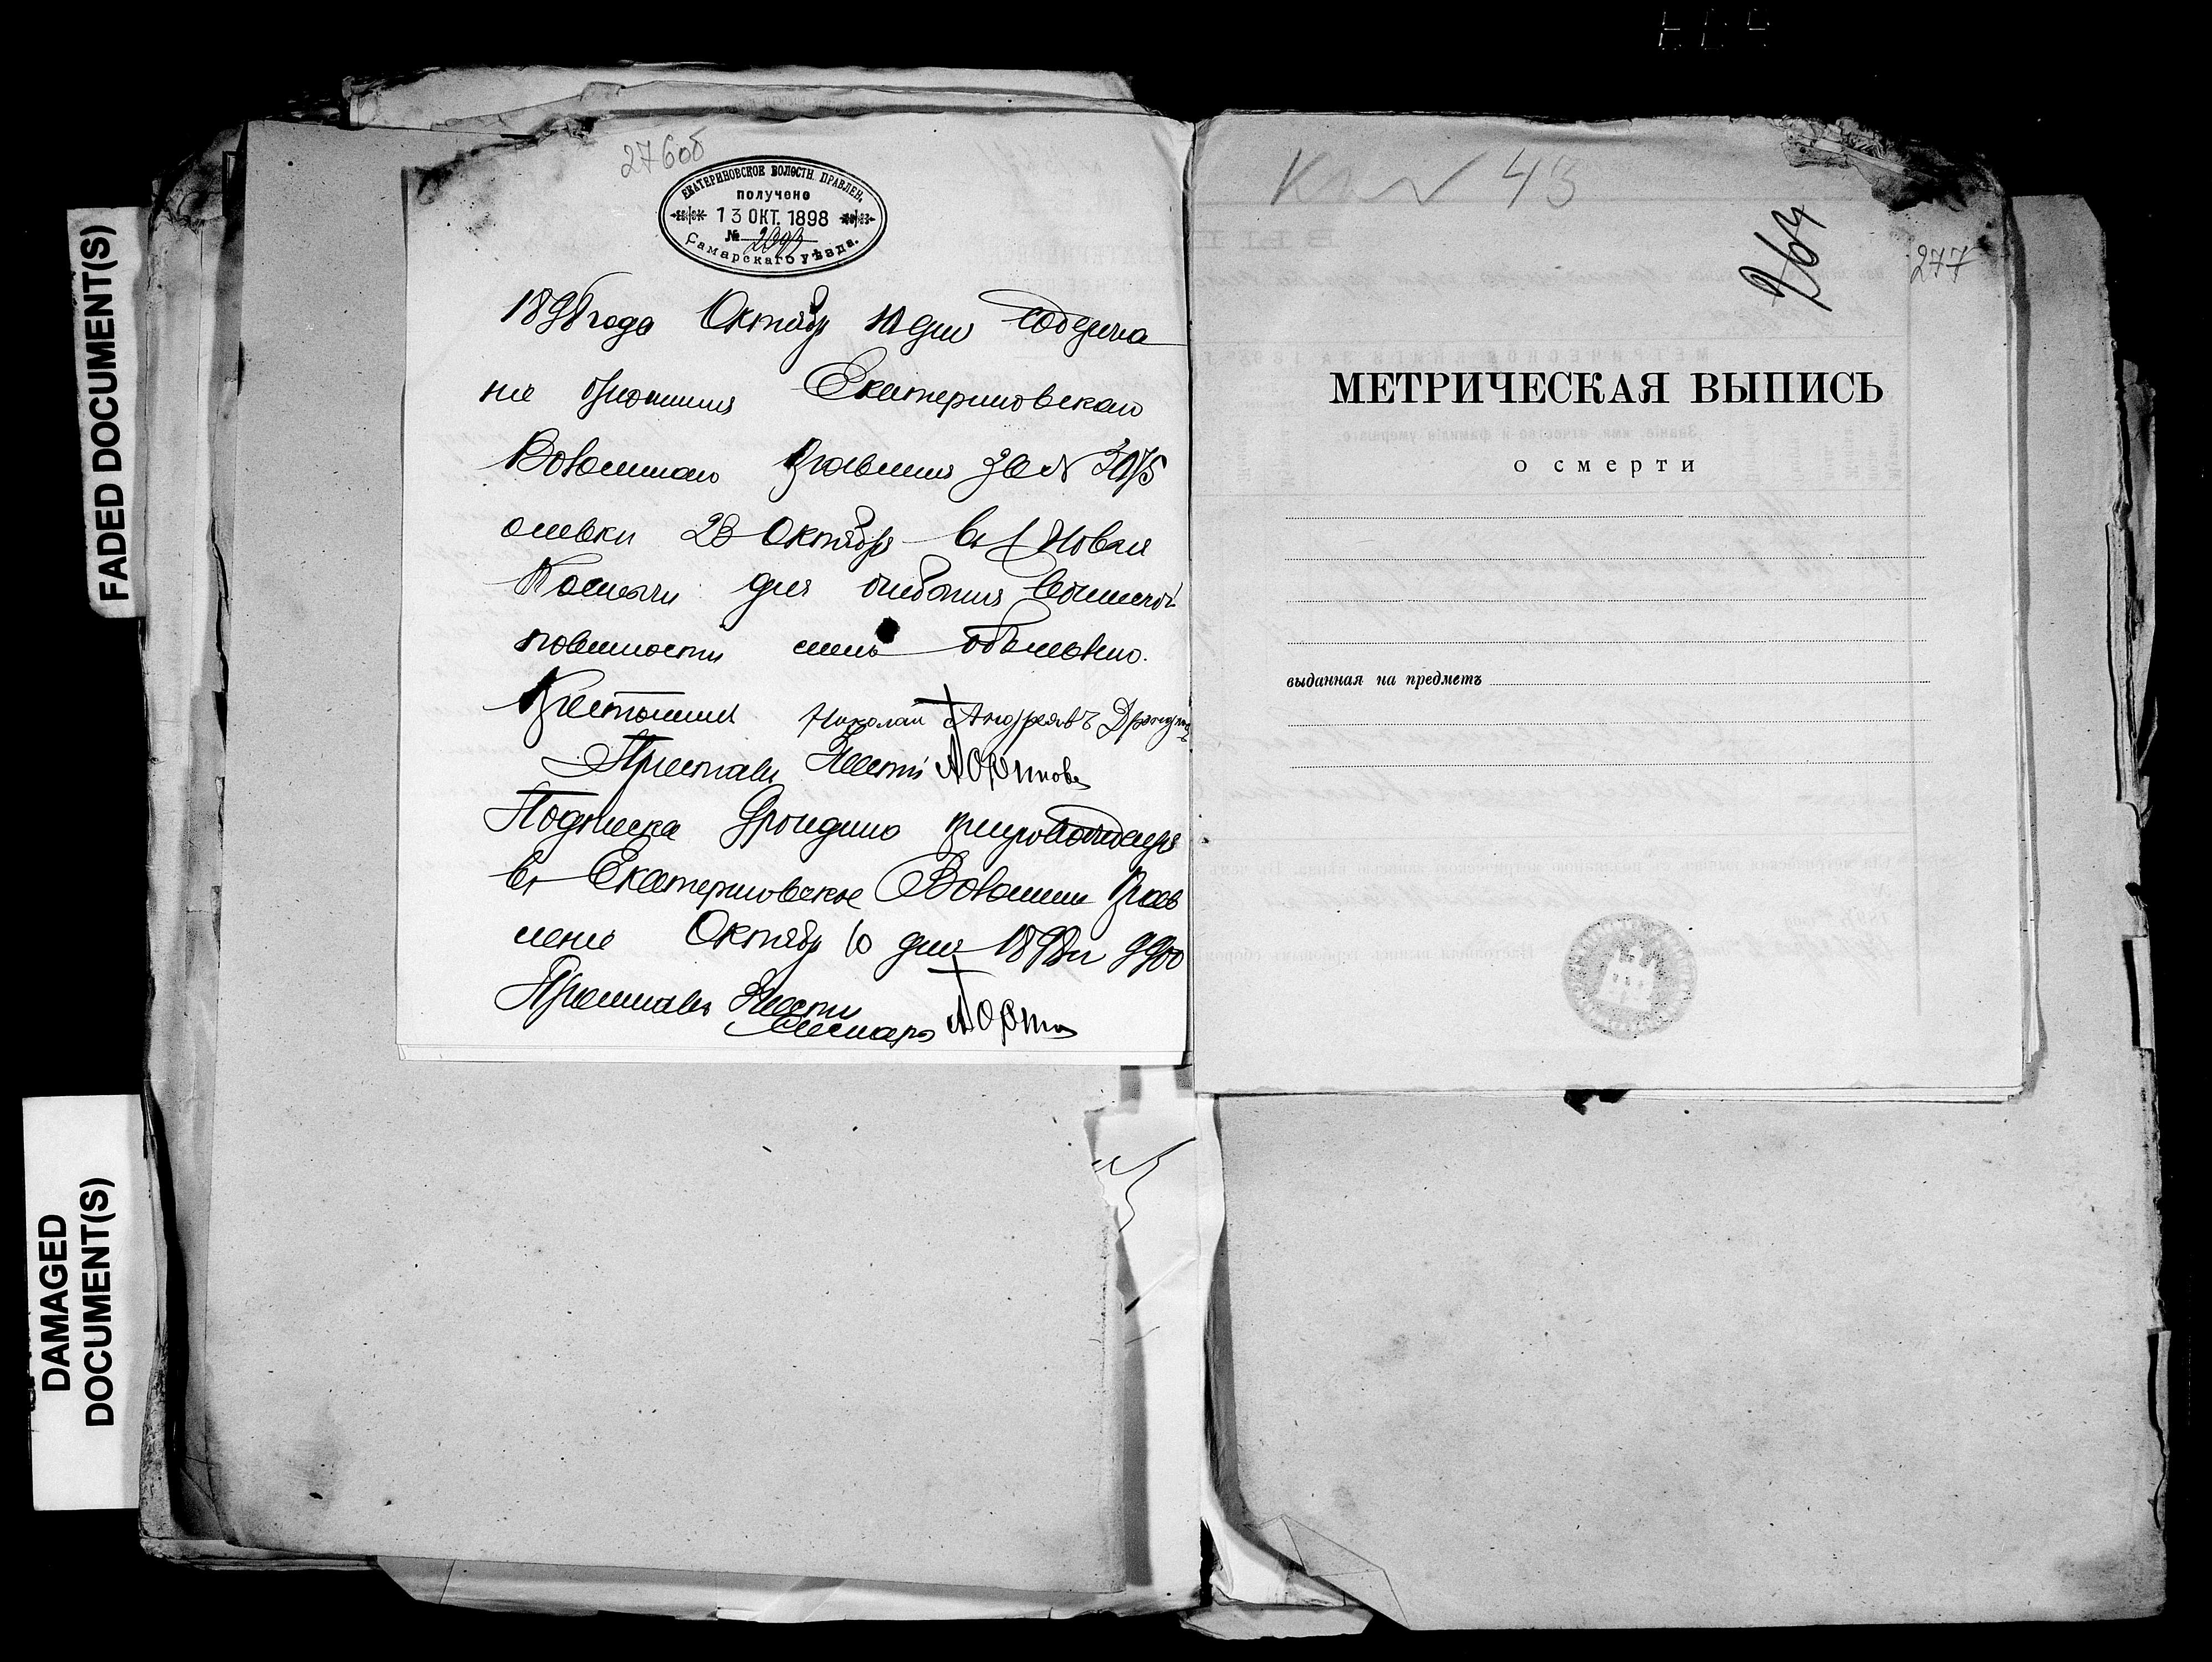 FADED DOCUMENT(S)
DAMAGED
DOCUMENT(S)
276об
ЕКАТЕРИНОВСКОЕ ВОЛОСТН. ПРАВЛЕН.
получено
13 ОКТ. 1898
№
Самарскаго уѣзда.
1898 года Октября 10 дня Содержа
ніе отношенія Екатериновскаго
Волостнаго Правленія за № 3075
о явки 23 Октября въ Новыя
Костычи для отбытія воинской
повинности мнѣ объявлено.
Крестьянинъ Николай Андреявъ
Приставъ Части
Подписка Дрондино препровождается
въ Екатериновское Волостное Прав
леніе Октября 10 дня 1898 г
Приставъ Части
43
264
277
МЕТРИЧЕСКАЯ ВЫПИСЬ
о смерти
выданная на предметъ